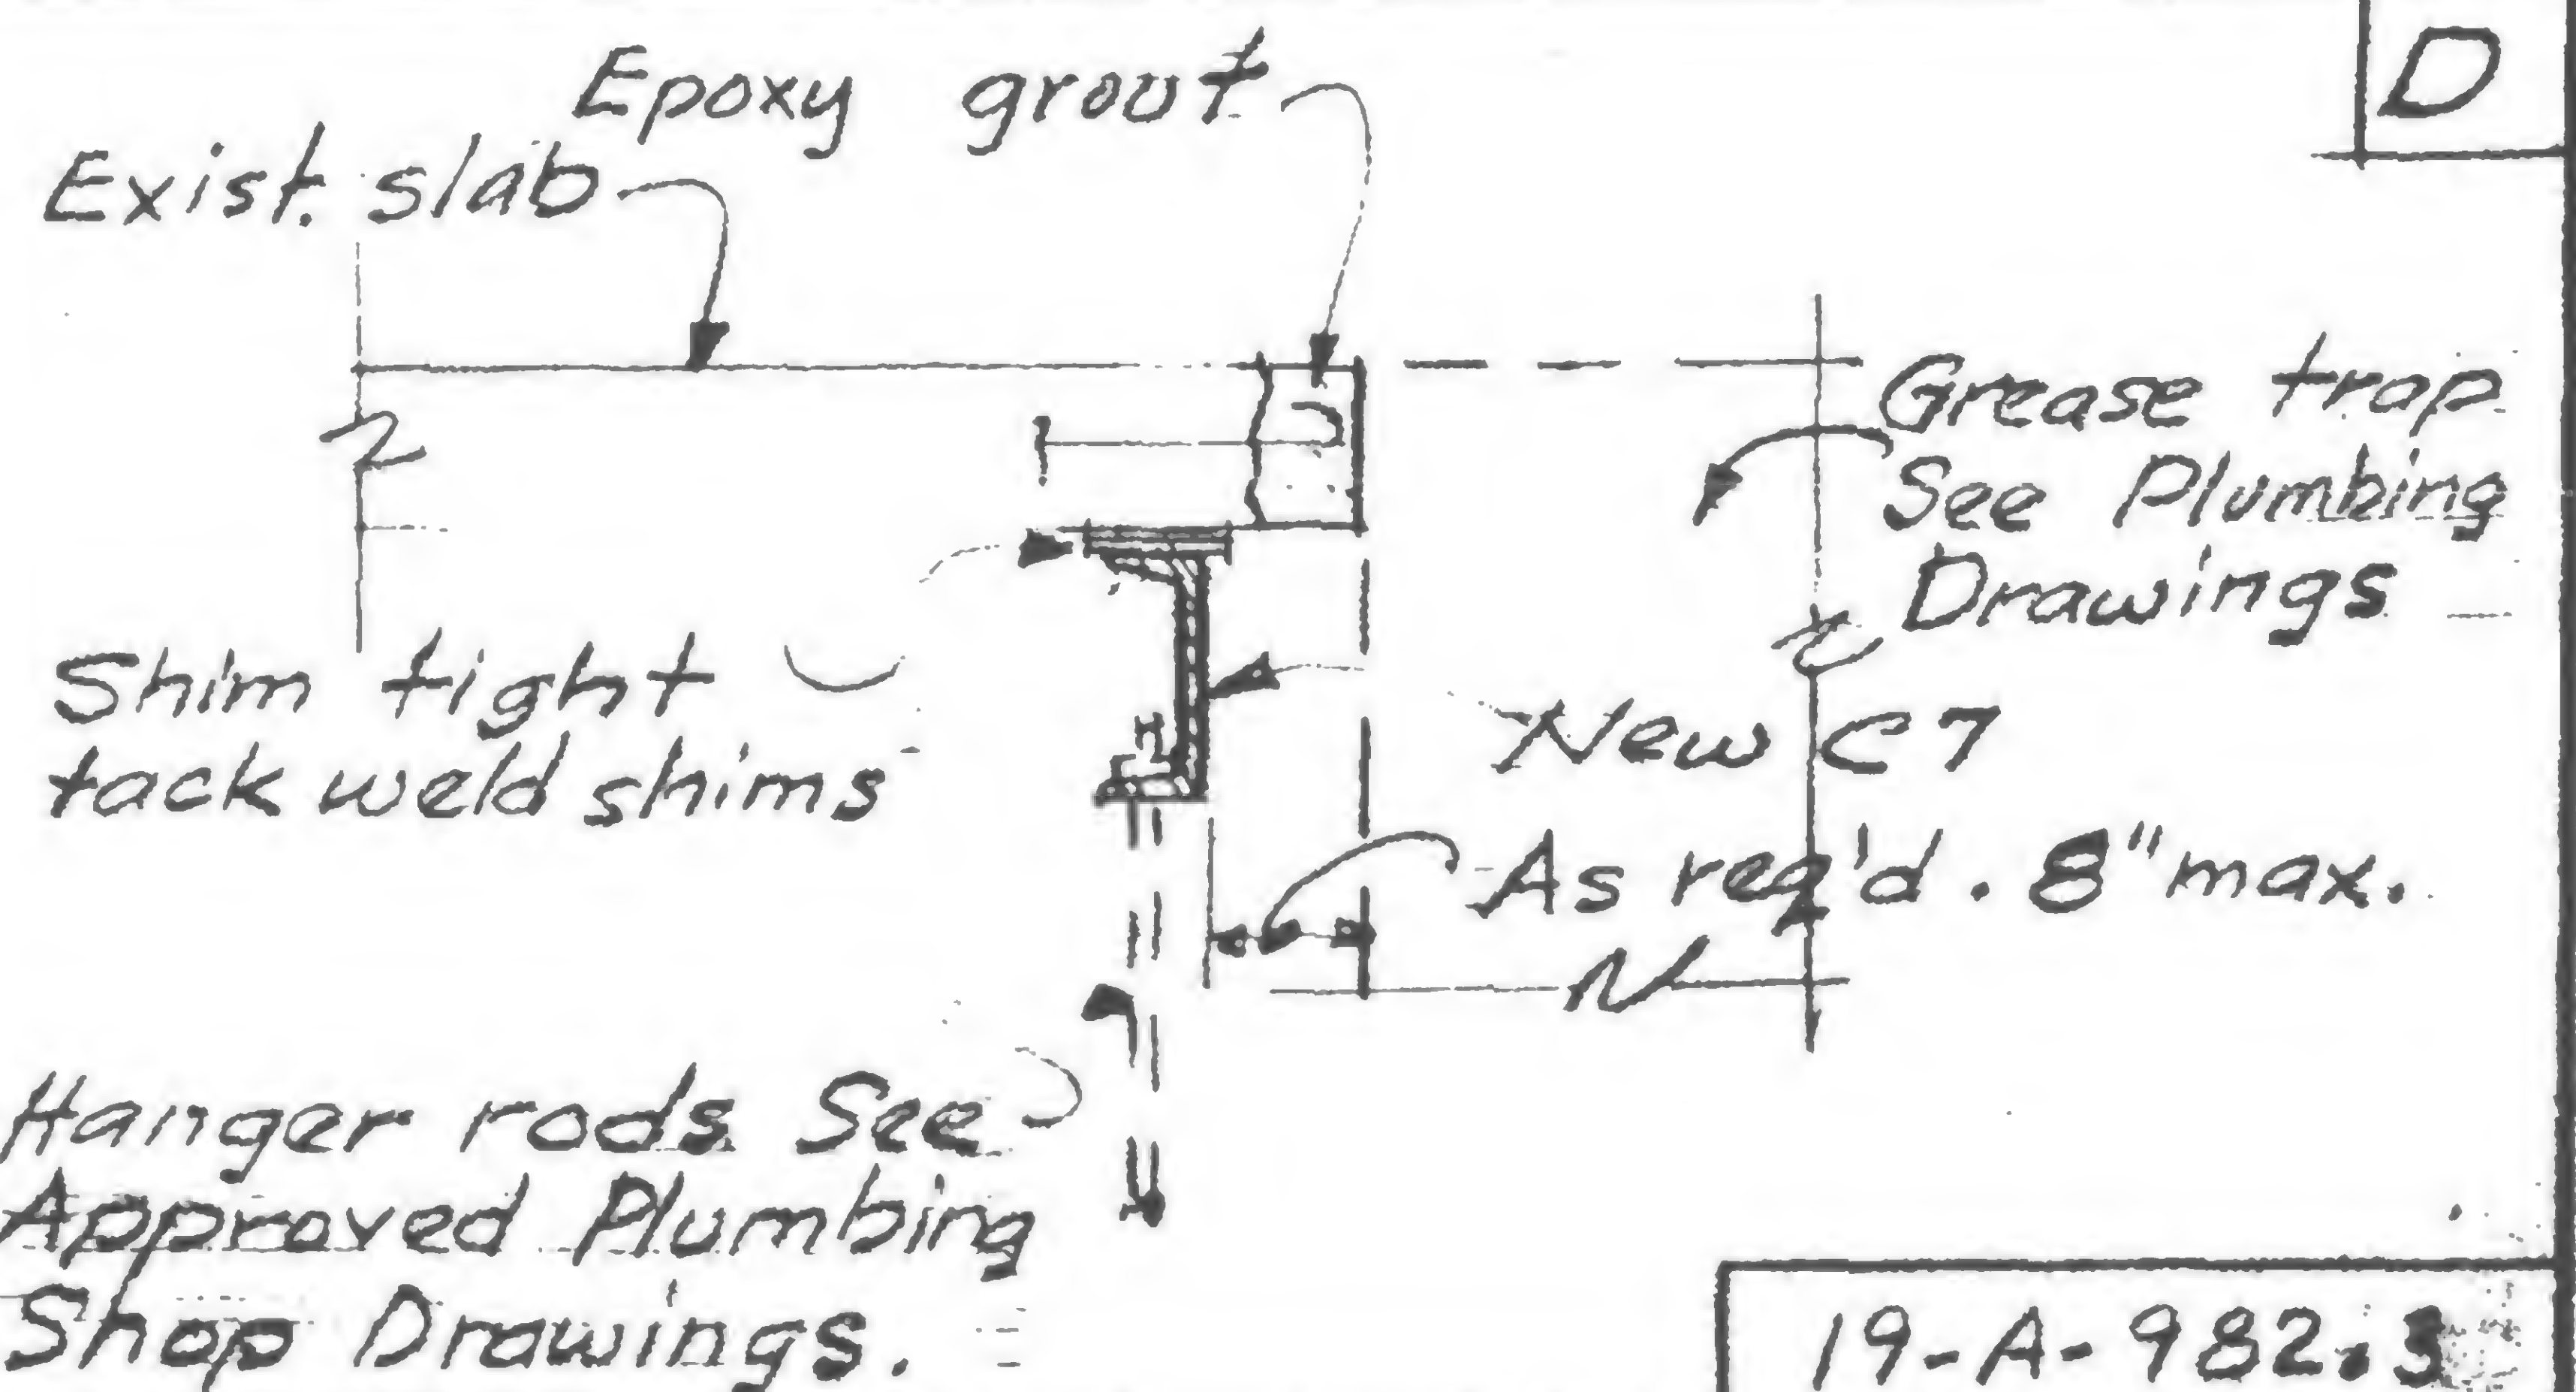 D
Epoxy grout
Exist. slab
Grease trap
See Plumbing
Drawings
Shim tight
tack weld shims
New C7
As req'd. 8" max.
Hanger rods See
Approved Plumbing
Shop Drawings.
19-A-982.3